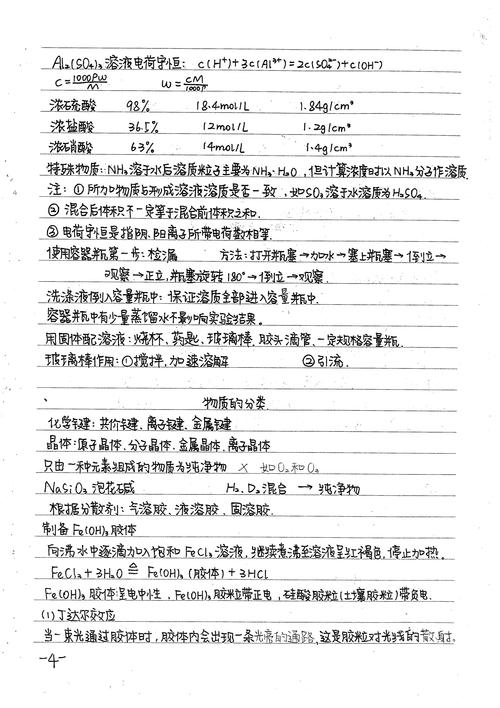 Al₂(SO₄)₃溶液电荷守恒：c(H⁺)+3c(Al³⁺)=2c(SO₄²⁻)+c(OH⁻)
C=1000ρw/M w=CM/1000ρ
浓硫酸 98% 18.4mol/L 1.84g/cm³
浓盐酸 36.5% 12mol/L 1.2g/cm³
浓硝酸 63% 14mol/L 1.4g/cm³
特殊物质：NH₃溶于水后溶质粒子主要为NH₃·H₂O，但计算浓度时以NH₃分子作溶质.
注：①所加物质与形成溶液溶质是否一致，如SO₃溶于水溶质为H₂SO₄.
②混合后体积不一定等于混合前体积之和.
③电荷守恒是指阴、阳离子所带电荷数相等.
使用容器瓶第一步：检漏 方法：打开瓶塞→加水→塞上瓶塞→倒立→
观察→正立，瓶塞旋转180°→倒立→观察.
洗涤液倒入容量瓶中：保证溶质全部进入容量瓶中.
容器瓶中有少量蒸馏水不影响实验结果。
用固体配溶液：烧杯、药匙、玻璃棒、胶头滴管、一定规格容量瓶.
玻璃棒作用：①搅拌，加速溶解 ②引流.
物质的分类.
化学键：共价键、离子键、金属键
晶体：原子晶体、分子晶体、金属晶体、离子晶体
只由一种元素组成的物质为纯净物 × 如O₂和O₃
NaSiO₃ 泡花碱 H₂、D₂混合 → 纯净物
根据分散剂：气溶胶、液溶胶、固溶胶.
制备Fe(OH)₃胶体
向沸水中逐滴加入饱和FeCl₃溶液，继续煮沸至溶液呈红褐色，停止加热.
FeCl₃+3H₂O ≙ Fe(OH)₃(胶体)+3HCl
Fe(OH)₃胶体呈电中性，Fe(OH)₃胶粒带正电，硅酸胶粒(土壤胶粒)带负电.
(1)丁达尔效应
当一束光通过胶体时，胶体内会出现一条光亮的通路，这是胶粒对光线的散射.
-4-